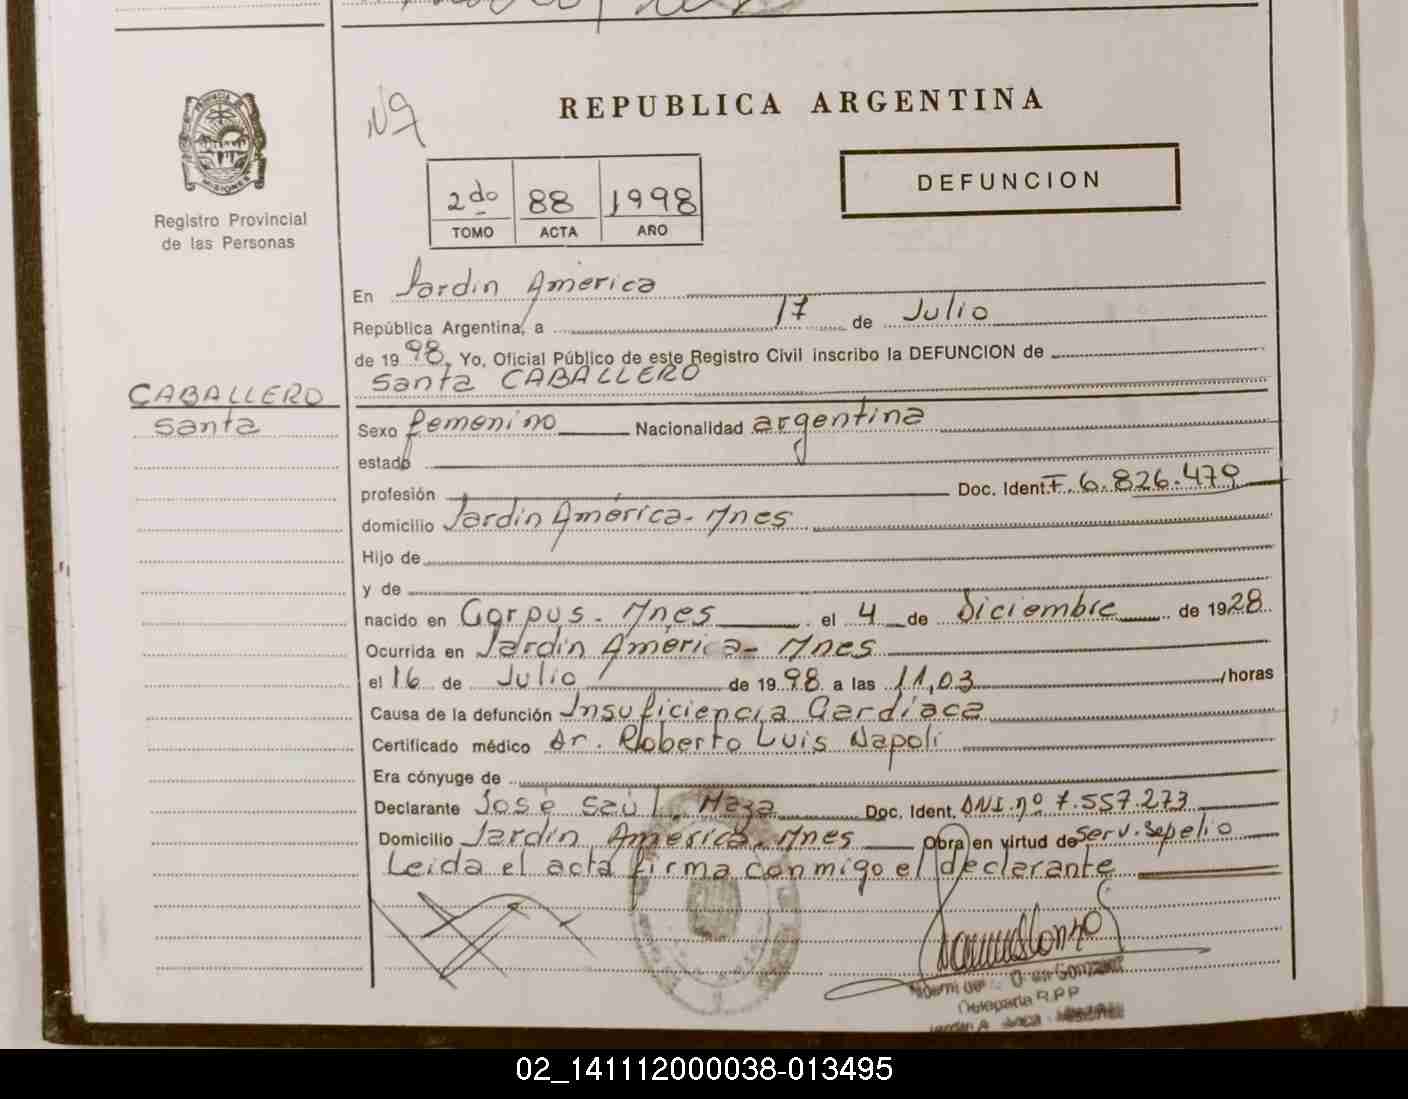 Nº
REPUBLICA ARGENTINA
PROVINCIA DE
MISIONES
Registro Provincial
de las Personas
2do 88 1998
TOMO ACTA AÑO
DEFUNCION
En Jardin América
República Argentina, a 17 de Julio
de 1998, Yo, Oficial Público de este Registro Civil inscribo la DEFUNCION de
Santa CABALLERO
CABALLERO
Santa
Sexo femenino Nacionalidad argentina
estado
profesión Doc. Ident. F. 6.826.479
domicilio Jardín América - Mnes
Hijo de
y de
nacido en Corpus - Mnes el 4 de Diciembre de 1928
Ocurrida en Jardín América - Mnes
el 16 de Julio de 1998 a las 11,03 /horas
Causa de la defunción Insuficiencia Cardíaca
Certificado médico Dr. Roberto Luis Napoli
Era cónyuge de
Declarante José Saúl Maza Doc. Ident. DNI. nº 7.557.273
Domicilio Jardín América, Mnes Obra en virtud de Serv. Sepelio
Leida el acta firma conmigo el declarante
Delegada R.P.P
02_141112000038-013495